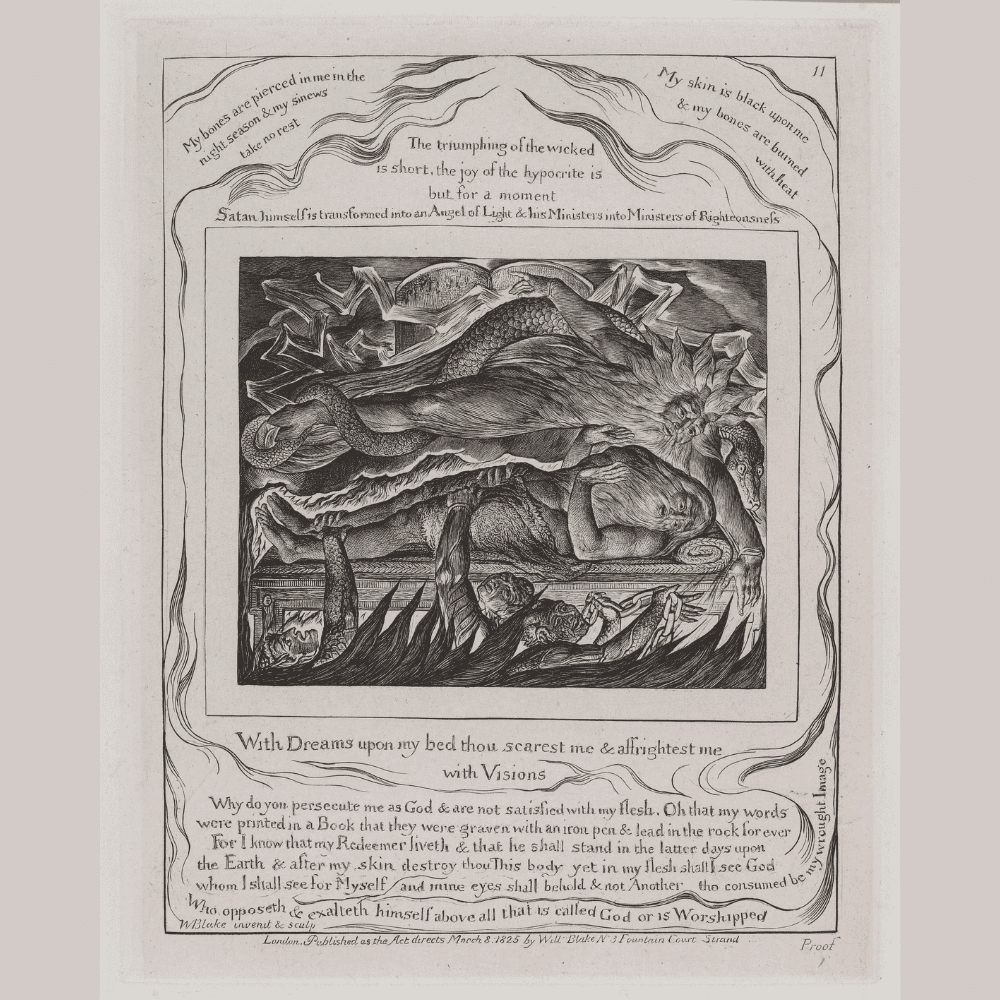 11
My bones are pierced in me in the
night season & my sinews
take no rest
My skin is black upon me
& my bones are burned
with heat
The triumphing of the wicked
is short, the joy of the hypocrite is
but for a moment
Satan himself is transformed into an Angel of Light & his Ministers into Ministers of Righteousness
With Dreams upon my bed thou scarest me & affrightest me
with Visions
Why do you persecute me as God & are not satisfied with my flesh. Oh that my words
were printed in a Book that they were graven with an iron pen & lead in the rock for ever
For I know that my Redeemer liveth & that he shall stand in the latter days upon
the Earth & after my skin destroy thou This body yet in my flesh shall I see God
whom I shall see for Myself and mine eyes shall behold & not Another tho consumed be my wrought Image
Who opposeth & exalteth himself above all that is called God or is Worshipped
WBlake invenit & sculp
London. Published as the Act directs March 8. 1825 by Will Blake N 3 Fountain Court Strand
Proof